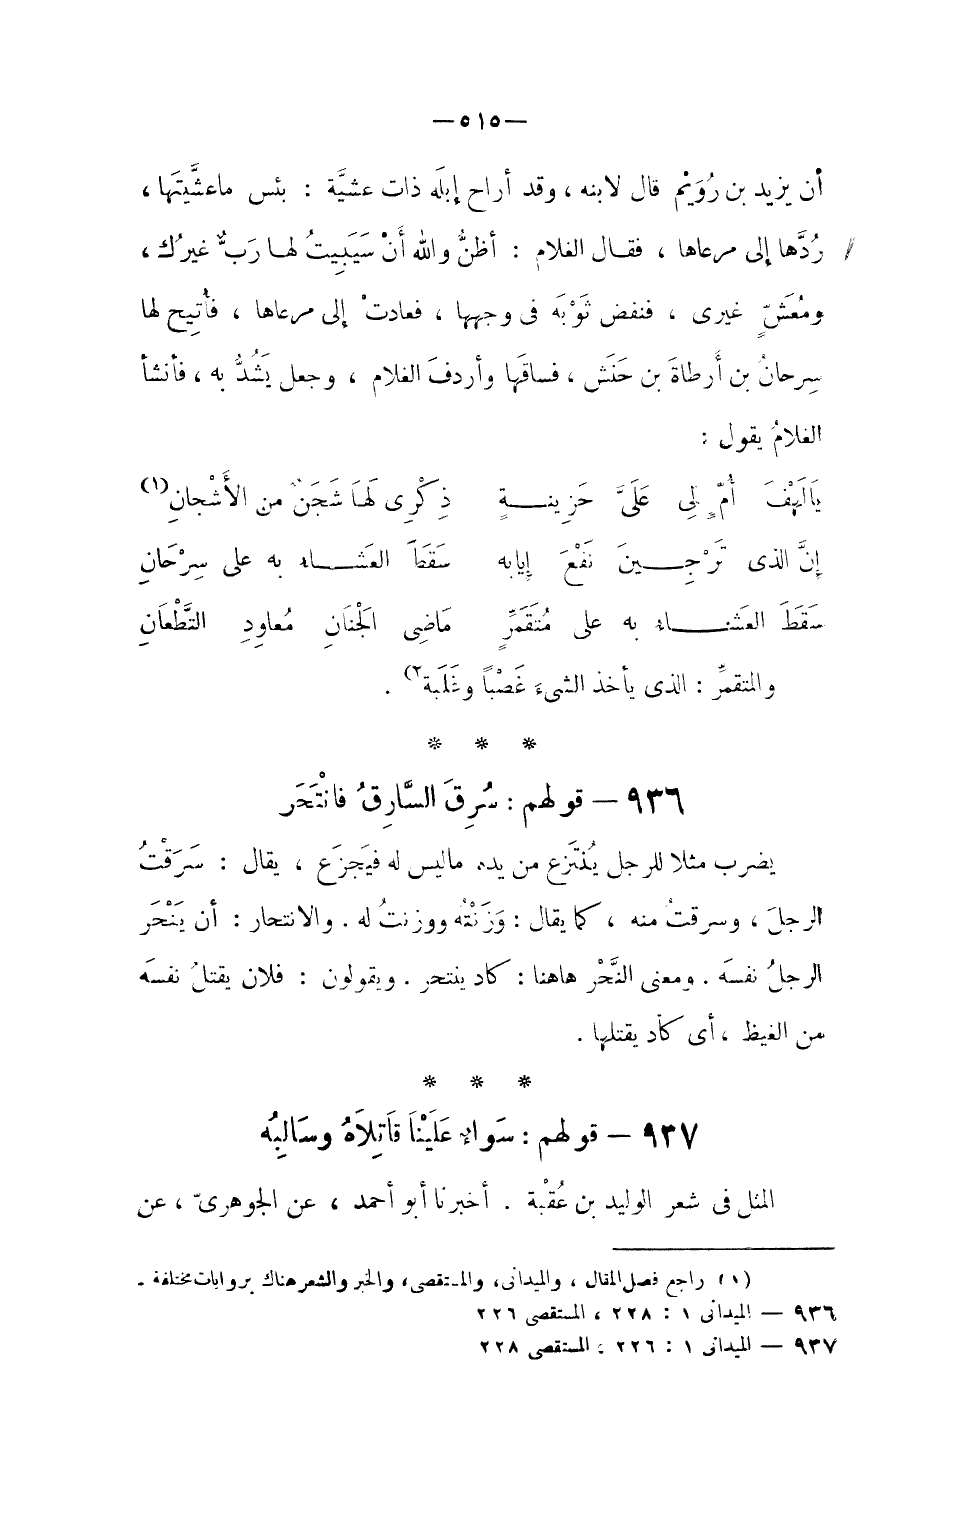 — ٥١٥ —
أن يزيد بن رُوَيْم قال لابنه ، وقد أراح إبلَه ذات عشيَّة : بئس ماعشَّيتَها ،
رُدَّها إلى مرعاها ، فقال الغلام : أظنُّ والله أنْ سَيَبِيتُ لها رَبٌّ غيرُك ،
ومُعَشٍّ غيرى ، فنفض ثَوْبَه فى وجهها ، فعادتْ إلى مرعاها ، فأُتِيح لها
سِرحانُ بن أَرطاةَ بن حَنَش ، فساقَها وأردفَ الغلام ، وجعل يَشُدُّ به ، فأنشأ
الغلامُ يقول :
يَالَهْفَ أُمٍّ لِى عَلَىَّ حَزِينةٍ ذِكْرِى لَهَا شَجَنٌ من الأَشْجانِ(١)
إنَّ الذى تَرْجِينَ نَفْعَ إيابه سَقَطَ العَشاء به على سِرْحَانِ
سَقَطَ العَشاء به على مُتَقَمِّرٍ مَاضِى الْجَنَانِ مُعاوِدِ التَّطْعَانِ
والمتقمِّر : الذى يأخذ الشىء غَصْبًا وغَلَبة(٢) .
* * *
٩٣٦ — قولهم : سُرِقَ السَّارِقُ فانْتَحَر
يضرب مثلا للرجل يُنْتَزع من يده ماليس له فيَجزَع ، يقال : سَرَقْتُ
الرجلَ ، وسرقتُ منه ، كما يقال : وَزَنْتُه ووزنتُ له . والانتحار : أن يَنْحَر
الرجلُ نفسَه . ومعنى النَّحْر هاهنا : كاد ينتحر . ويقولون : فلان يقتلُ نفسَه
من الغيظ ، أى كاد يقتلها .
* * *
٩٣٧ — قولهم : سَواء عَلَيْنَا قَاتِلاَهُ وسَالِبُه
المثل فى شعر الوليد بن عُقْبة . أخبرنا أبو أحمد ، عن الجوهرىّ ، عن
(١) راجع فصل المقال ، والميدانى، والمستقصى، والخبر والشعر هناك بروايات مختلفة .
٩٣٦ — الميدانى ١ : ٢٢٨ ، المستقصى ٢٢٦
٩٣٧ — الميدانى ١ : ٢٢٦ ، المستقصى ٢٢٨